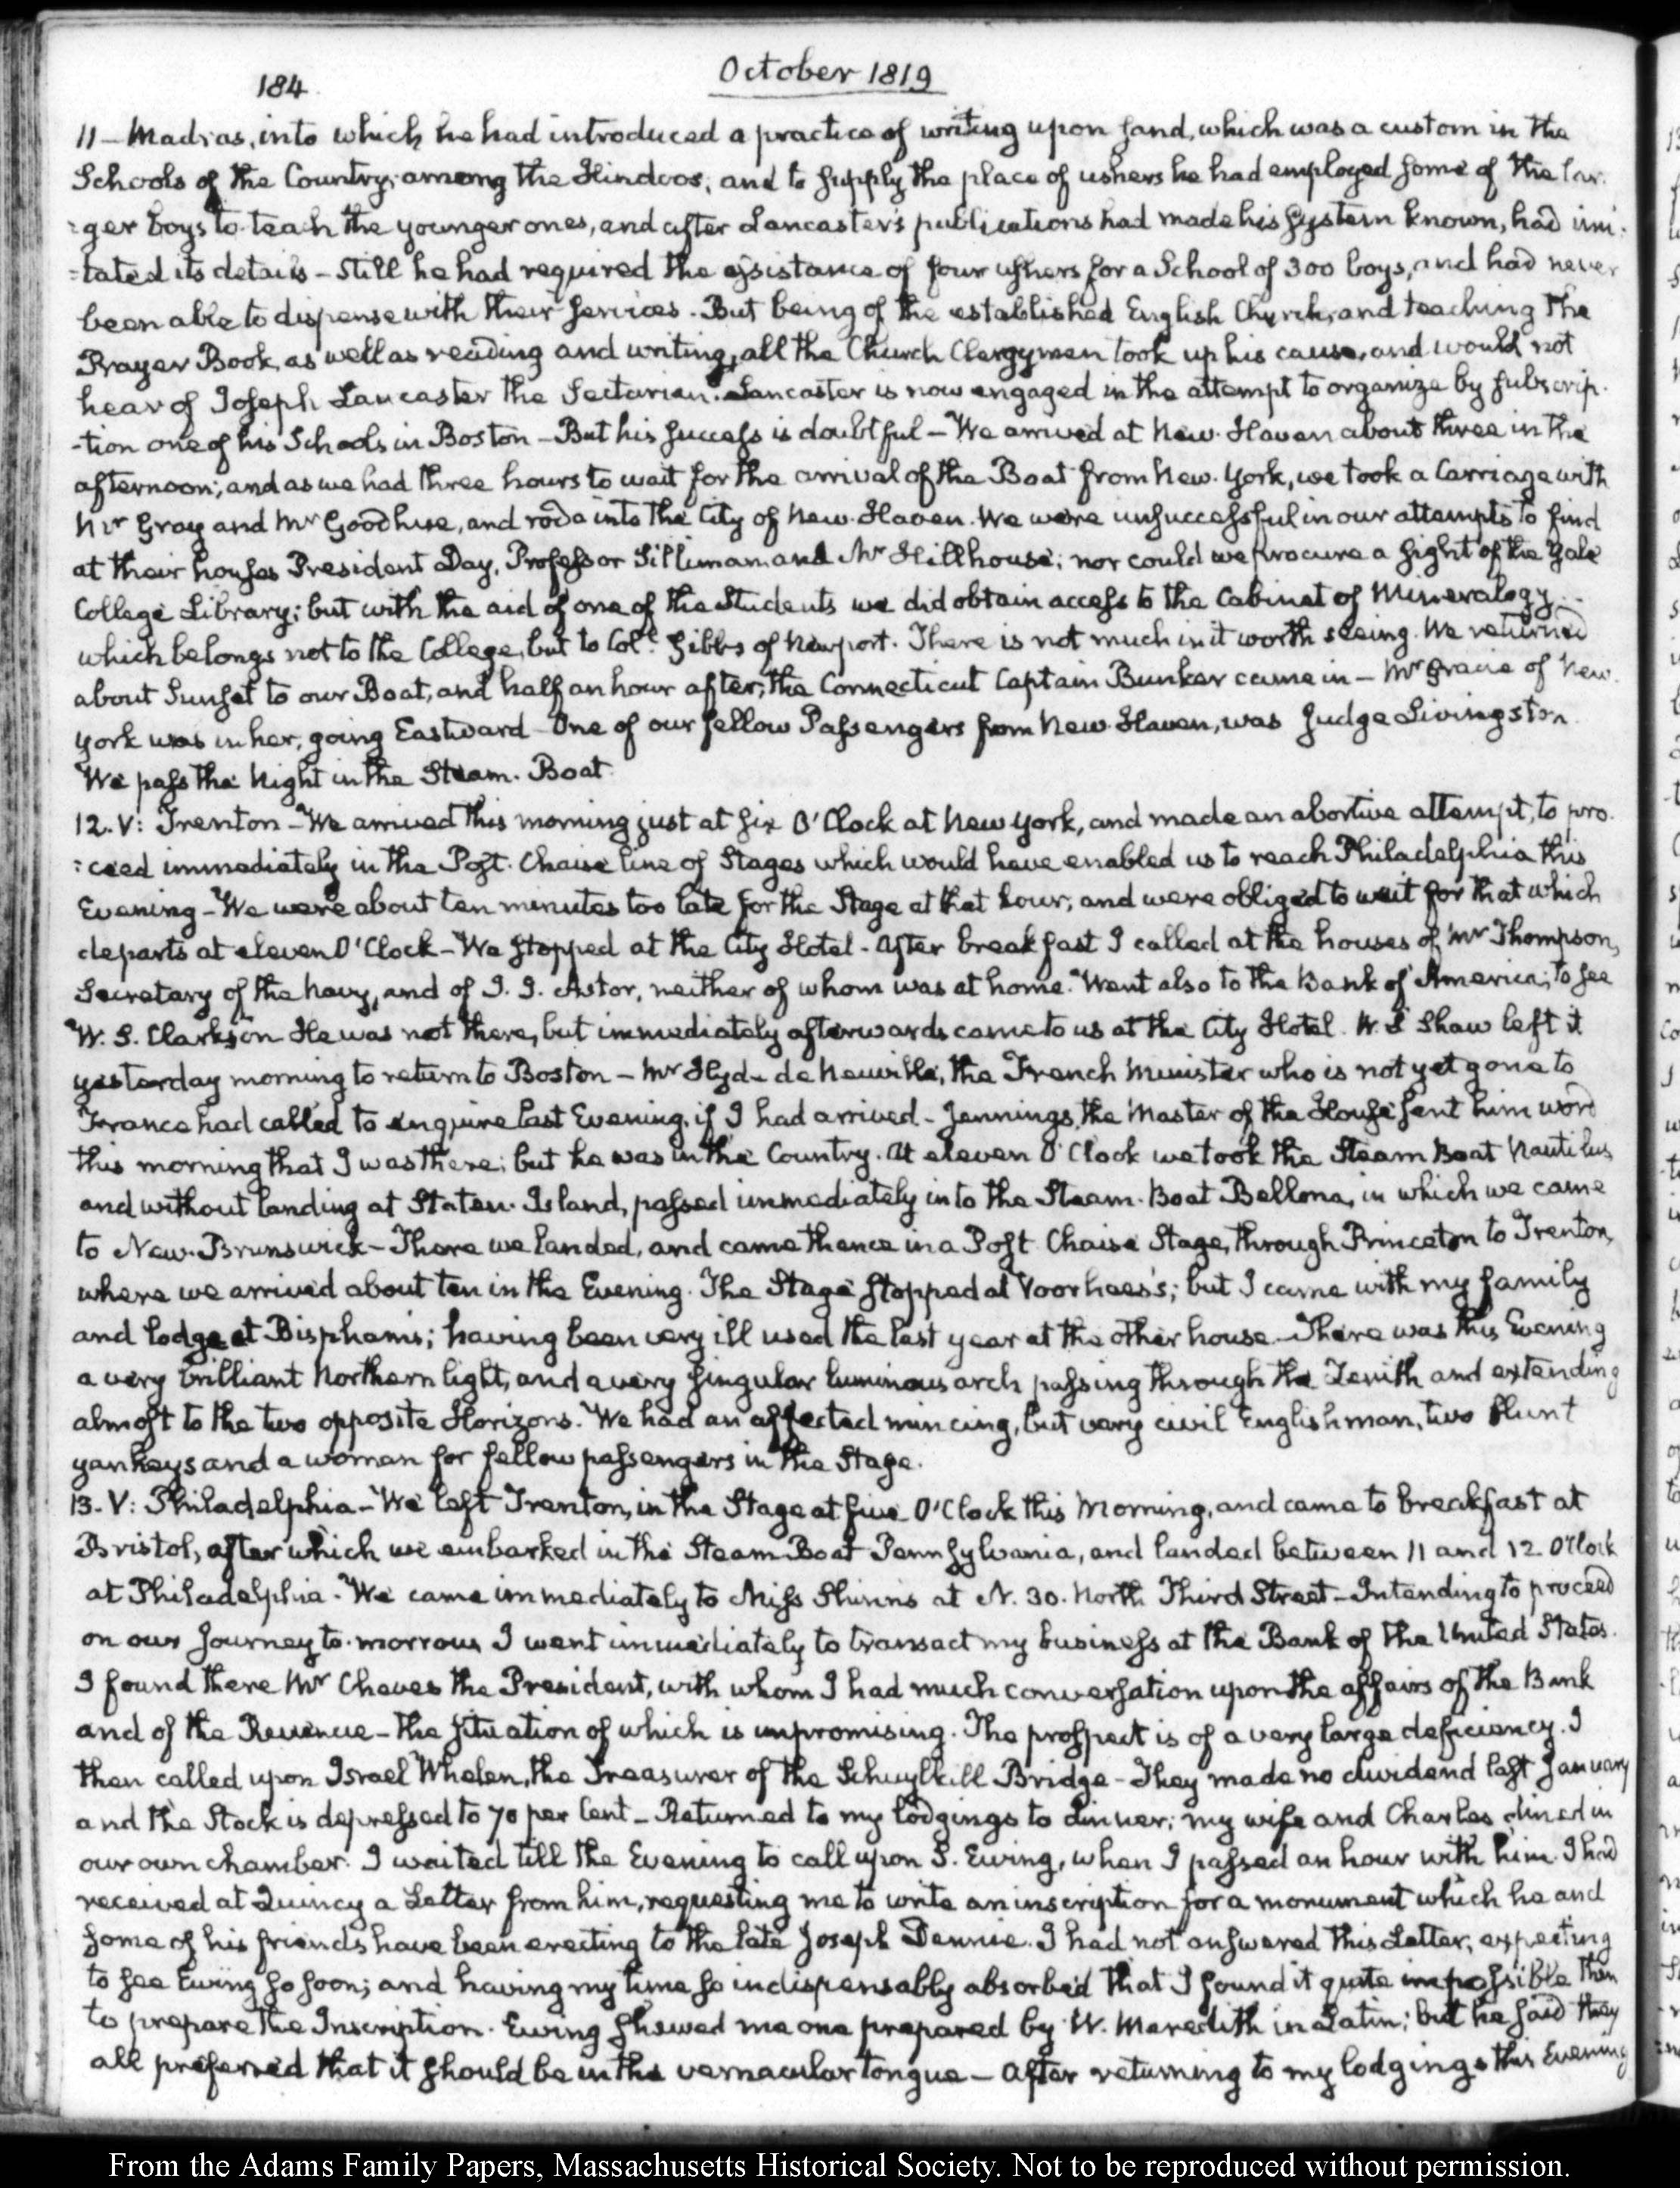 184
October 1819
11 – Madras, into which he had introduced a practice of writing upon sand, which was a custom in the
Schools of the Country, among the Hindoos; and to supply the place of ushers he had employed some of the lar-
:ger boys to teach the younger ones, and after Lancaster's publications had made his system known, had imi-
:tated its details – Still he had required the assistance of four ushers for a School of 300 boys, and had never
been able to dispense with their services. But being of the established English Church, and teaching the
Prayer Book, as well as reading and writing, all the Church Clergymen took up his cause, and would not
hear of Joseph Lancaster the Sectarian. Lancaster is now engaged in the attempt to organize by subscrip-
-tion one of his Schools in Boston – But his success is doubtful – We arrived at New-Haven about three in the
afternoon; and as we had three hours to wait for the arrival of the Boat from New-York, we took a Carriage with
Mr Gray and Mr Goodhue, and rode into the City of New-Haven. We were unsuccessful in our attempts to find
at their houses President Day, Professor Silliman and Mr Hillhouse; nor could we procure a sight of the Yale
College Library; but with the aid of one of the Students we did obtain access to the Cabinet of Mineralogy
which belongs not to the College, but to Coll. Gibbs of Newport. There is not much in it worth seeing. We returned
about Sunset to our Boat, and half an hour after, the Connecticut Captain Bunker came in – Mr Gracie of New-
York was in her, going Eastward – One of our fellow Passengers from New Haven, was Judge Livingston
We pass the Night in the Steam-Boat.
12. V: Trenton – We arrived this morning just at six O'Clock at New York, and made an abortive attempt, to pro-
:ceed immediately in the Post-Chaise line of Stages which would have enabled us to reach Philadelphia this
Evening – We were about ten minutes too late for the Stage at that hour, and were obliged to wait for that which
departs at eleven O'Clock – We stopped at the City Hotel – After breakfast I called at the houses of Mr Thompson,
Secretary of the Navy, and of J. J. Astor, neither of whom was at home. Went also to the Bank of America, to see
W. S. Clarkson He was not there, but immediately afterwards came to us at the City Hotel. W. S Shaw left it
yesterday morning to return to Boston – Mr Hyde de Neuville, the French Minister who is not yet gone to
France had called to enquire last Evening, if I had arrived – Jennings, the Master of the House sent him word
this morning that I was there; but he was in the Country. At eleven O'Clock we took the Steam Boat Nautilus,
and without landing at Staten-Island, passed immediately into the Steam-Boat Bellona, in which we came
to New-Brunswick – There we landed, and came thence in a Post Chaise Stage, through Princeton to Trenton,
where we arrived about ten in the Evening. The Stage stopped at Voorhees's; but I came with my family
and lodge at Bispham's; having been very ill used the last year at the other house – There was this Evening
a very brilliant Northern light, and a very singular luminous arch passing through the Zenith and extending
almost to the two opposite Horizons. We had an affected mincing, but very civil Englishman, two blunt
yankeys and a woman for fellow passengers in the Stage.
13. V: Philadelphia – We left Trenton, in the Stage at five O'Clock this Morning, and came to breakfast at
Bristol, after which we embarked in the Steam Boat Pennsylvania, and landed between 11 and 12. O'Clock
at Philadelphia – We came immediately to Miss Shinn's at N. 30. North Third Street – Intending to proceed
on our Journey to-morrow I went immediately to transact my business at the Bank of the United States.
I found there Mr Cheves the President, with whom I had much conversation upon the affairs of the Bank
and of the Revenue – the situation of which is unpromising. The prospect is of a very large deficiency. I
then called upon Israel Whelen, the Treasurer of the Schuylkill Bridge – They made no dividend last January
and the Stock is depressed to 70 per Cent – Returned to my lodgings to dinner; my wife and Charles dined in
our own chamber. I waited till the Evening to call upon S. Ewing, when I passed an hour with him. I had
received at Quincy a Letter from him, requesting me to write an inscription for a monument which he and
some of his friends have been erecting to the late Joseph Dennie. I had not answered this Letter, expecting
to see Ewing so soon; and having my time so indispensably absorbed that I found it quite impossible then
to prepare the Inscription. Ewing shewed me one prepared by W. Meredith in Latin; but he said they
all preferred that it should be in the vernacular tongue – After returning to my lodgings this Evening
From the Adams Family Papers, Massachusetts Historical Society. Not to be reproduced without permission.